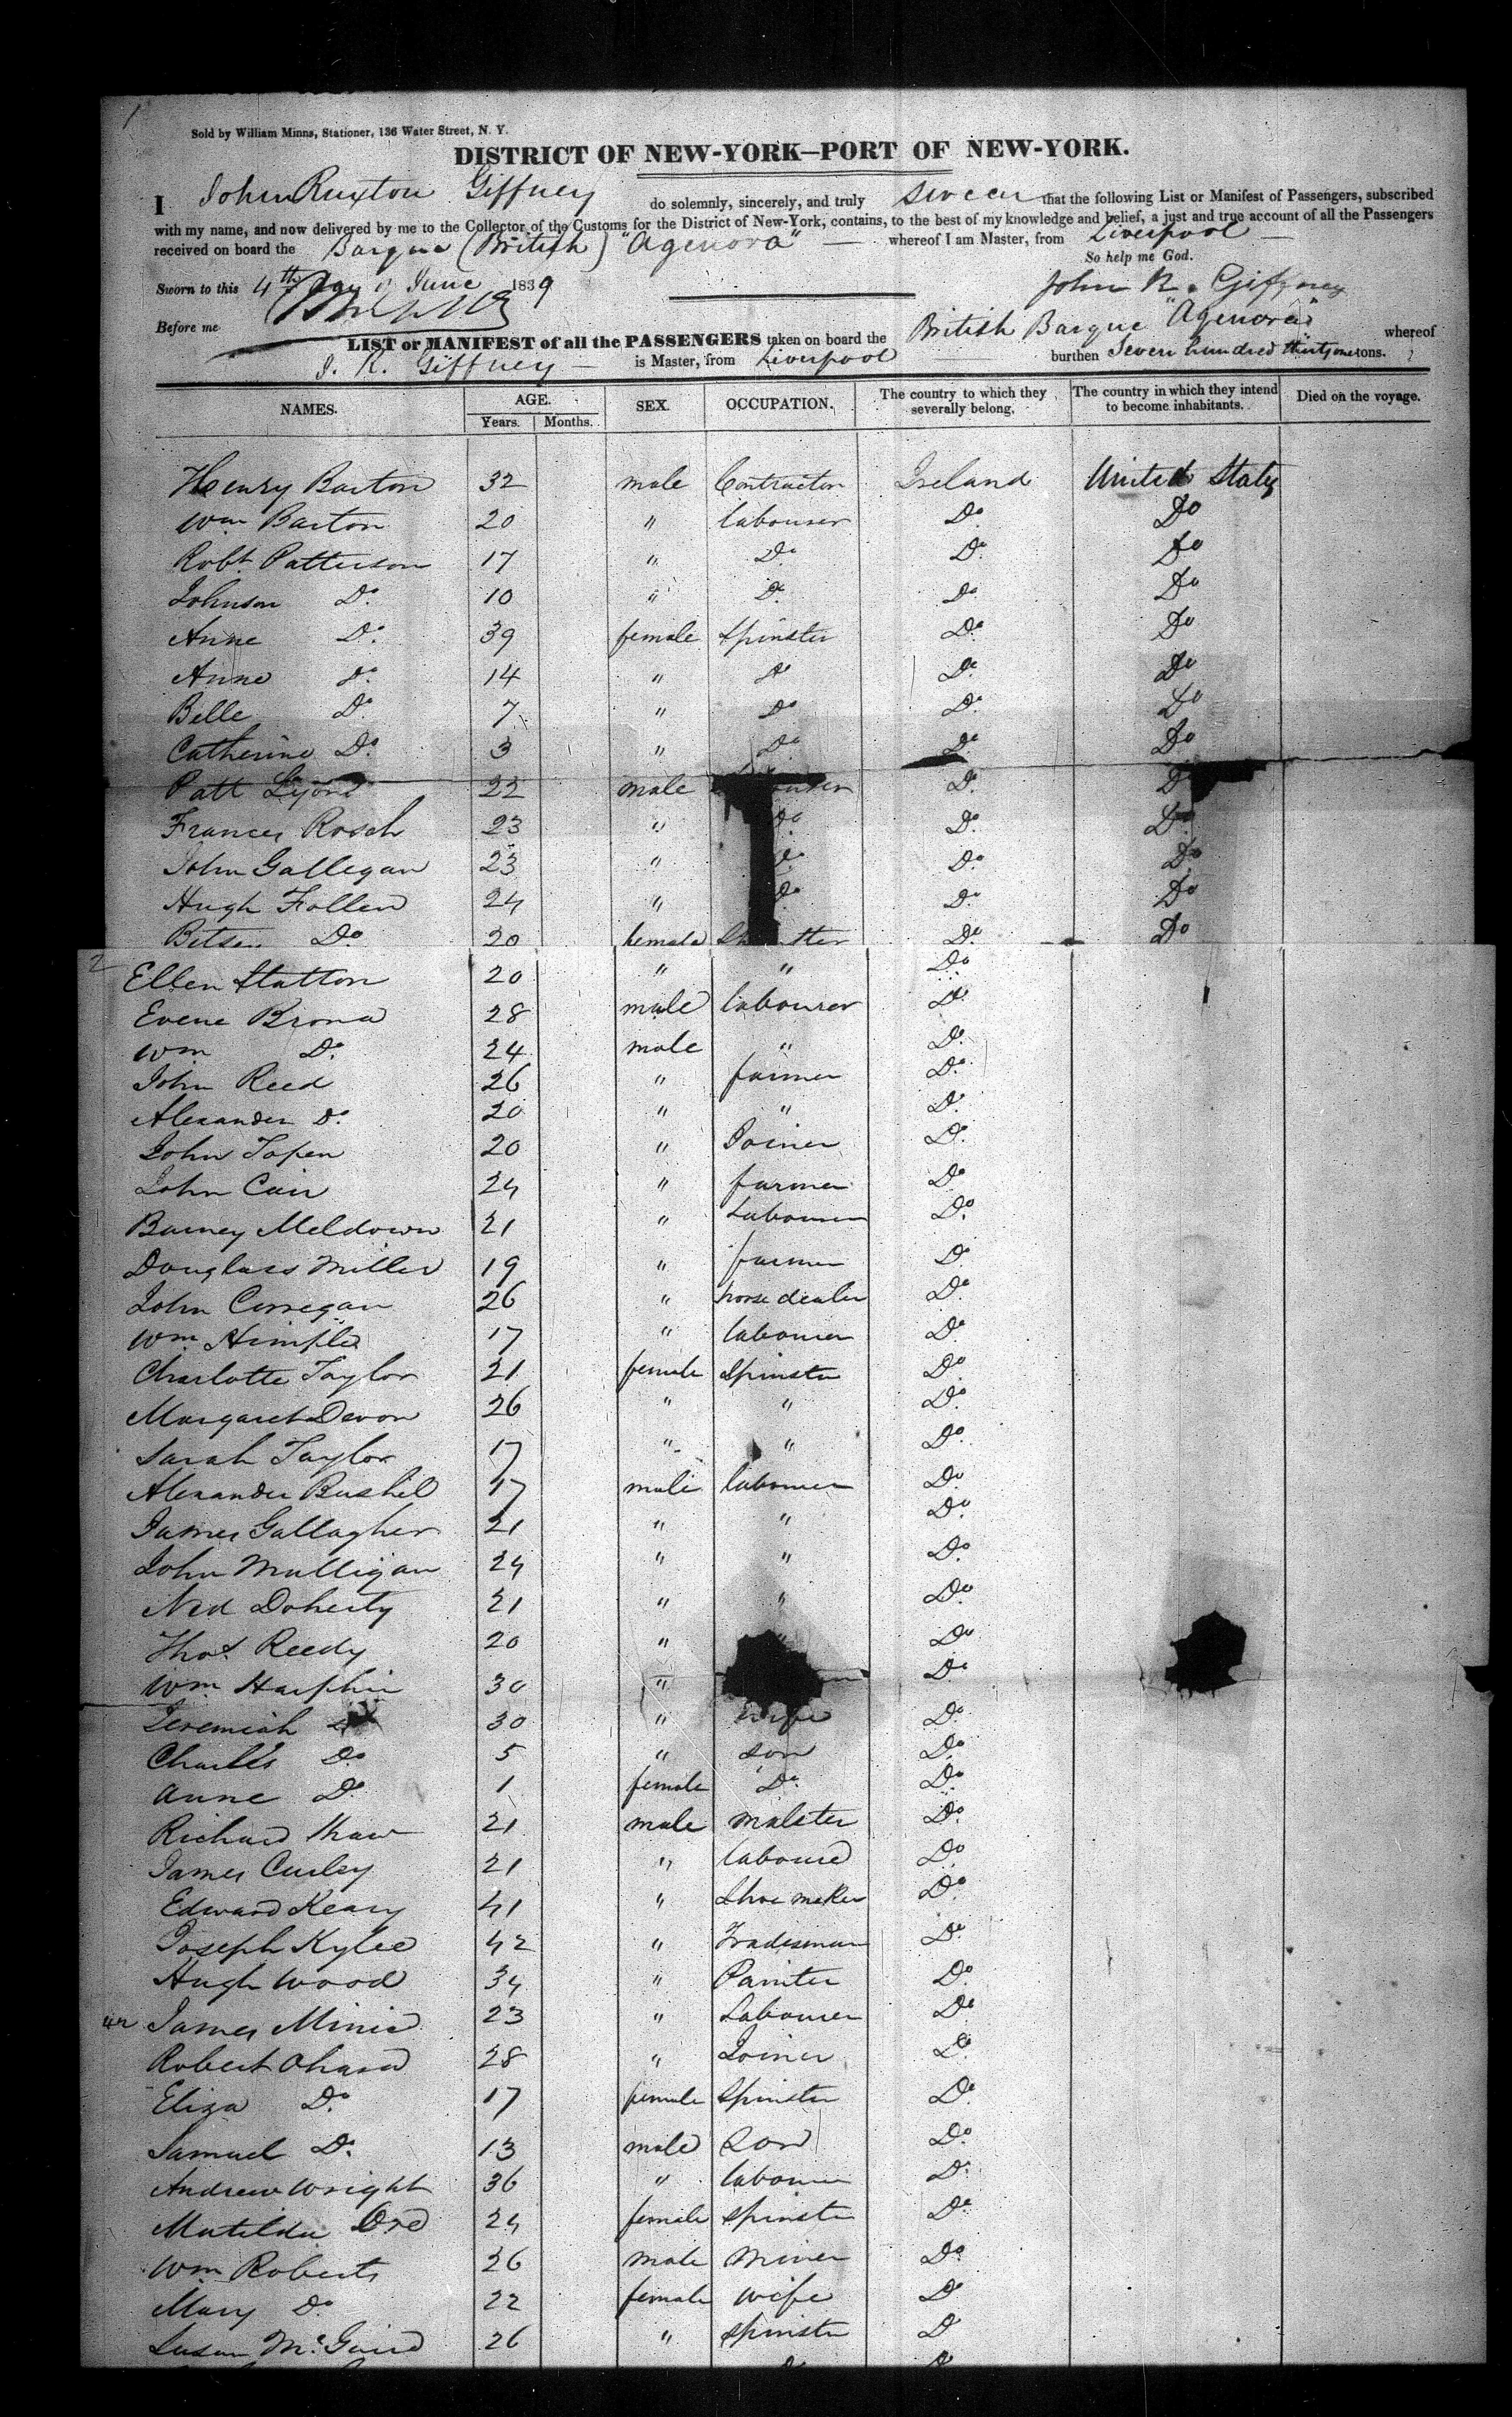 1
Sold by William Minns, Stationer, 136 Water Street, N. Y.
DISTRICT OF NEW-YORK—PORT OF NEW-YORK.
I John Ruxton Giffney do solemnly, sincerely, and truly swear that the following List or Manifest of Passengers, subscribed
with my name, and now delivered by me to the Collector of the Customs for the District of New-York, contains, to the best of my knowledge and belief, a just and true account of all the Passengers
received on board the Barque (British) "Agenora" — whereof I am Master, from Liverpool —
So help me God.
Sworn to this 4th Day of June 1839 John R. Giffney
Before me
LIST or MANIFEST of all the PASSENGERS taken on board the British Barque "Agenora" whereof
J. R. Giffney — is Master, from Liverpool burthen Seven hundred thirty one tons.
NAMES. AGE. SEX. OCCUPATION. The country to which they severally belong. The country in which they intend to become inhabitants. Died on the voyage.
Years. Months.
Henry Barton 32 male Contractor Ireland United States
Wm Barton 20 " labourer Do Do
Robt Patterson 17 " Do Do Do
Johnson Do 10 " Do Do Do
Anne Do 39 female Spinster Do Do
Anne Do 14 " Do Do Do
Belle Do 7 " Do Do Do
Catherine Do 3 " Do Do Do
Patt Lyons 22 male Do Do
Frances Rosch 23 " Do Do Do
John Gallegan 23 " Do Do Do
Hugh Fallen 24 " Do Do Do
Betsey Do 20 female Do Do
2
Ellen Statton 20 " " Do
Evene Brona 28 male labourer Do
Wm Do 24 male " Do
John Reed 26 " farmer Do
Alexander Do 20 " " Do
John Topen 20 " Joiner Do
John Cair 24 " farmer Do
Barney Meldown 21 " Labourer Do
Douglass Miller 19 " farmer Do
John Corregan 26 " horse dealer Do
Wm Himple 17 " labourer Do
Charlotte Taylor 21 female Spinster Do
Margaret Devon 26 " " Do
Sarah Taylor 17 " " Do
Alexander Bushil 17 male labourer Do
James Gallagher 21 " " Do
John Mulligan 24 " " Do
Ned Doherty 21 " " Do
Thos Reedy 20 " Do
Wm Harphin 30 " Do
Jeremiah 30 " wife Do
Charles Do 5 " son Do
Anne Do 1 female Do Do
Richard Shaw 21 male malster Do
James Curley 21 " laboured Do
Edward Keary 41 " Shoe maker Do
Joseph Kylee 42 " Tradesman Do
Hugh Wood 34 " Painter Do
James Minie 23 " Labourer Do
Robert Ohara 28 " Joiner Do
Eliza Do 17 female Spinster Do
Samuel Do 13 male Son Do
Andrew Wright 36 " labourer Do
Matilda Ord 24 female Spinster Do
Wm Roberts 26 male Miner Do
Mary Do 22 female wife Do
Susan McGuird 26 " Spinster D